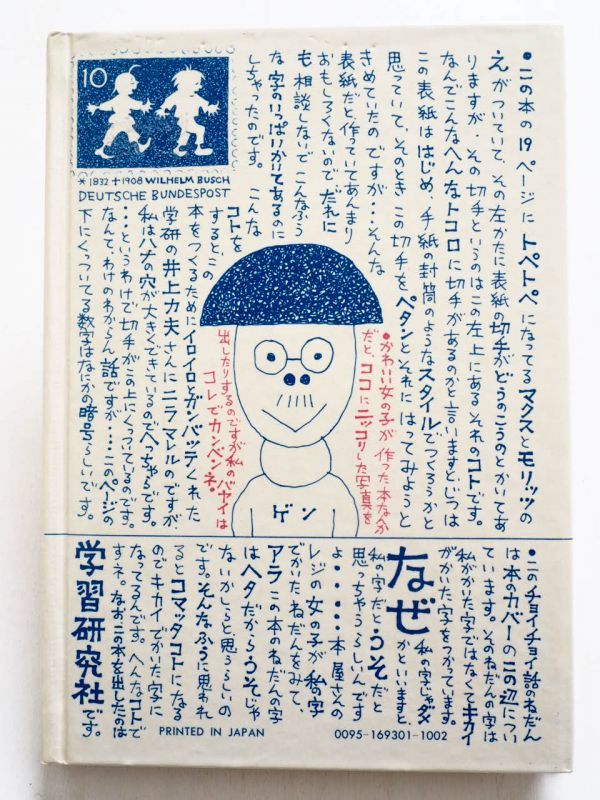 10
* 1832 + 1908 WILHELM BUSCH
DEUTSCHE BUNDESPOST
•この本の19ページに トペトペになってるマクスとモリッツの
えがついていて、その左かたに表紙の切手がどうのこうのとかいてあ
りますが、その切手というのはこの左上にあるそれのコトです。
なんでこんなへんなトコロに切手があるのかと言いますとじつは
この表紙ははじめ、手紙の封筒のようなスタイルでつくろうかと
思っていて、そのとき この切手をペタンとそれに はってみようと
きめていたの ですが・・・そんな
表紙だと作っていてあんまり
おもしろくないので、だれに
も相談しないで こんなふう
な字のいっぱいかいてあるのに
しちゃったのです。 こんな
コトを
するとこの
本をつくるためにイロイロとガンバッテくれた
学研の井上力夫さんにニラマレルのですが、
私はハナの穴が大きくできているのでへっちゃらです。
・・・というわけで切手がこの上にくっついているのです。
なんてわけのわからん話ですが・・・このページの
下にくっついてる数字はなにかの暗号らしいです。
•かわいい女の子が 作った本なんか
だと、ココにニッコリした写真を
出したりするのですが私のバヤイは
コレでカンベンネ。
ゲン
•このチョイチョイ話のねだん
は本のカバーのこの辺につい
ています。そのねだんの字は
私がかいた字ではなくてキカイ
がかいた字をつかています。
なぜ
私の字じゃダメ
かといいますと、
私の字だとうそだと
思っちゃうらしいんです
よ・・・・・本屋さんの
レジの女の子が私の字
でかいたねだんをみて、
アラ この本のねだんの字
はヘタだからうそじゃ
ないかしらと思うらしいの
です。そんなふうに思われ
るとコマッタコトになる
のでキカイでかいた字に
なってるんです。へんなコトで
すネ。なおこの本を出したのは
学習研究社です。
PRINTED IN JAPAN
0095-169301-1002